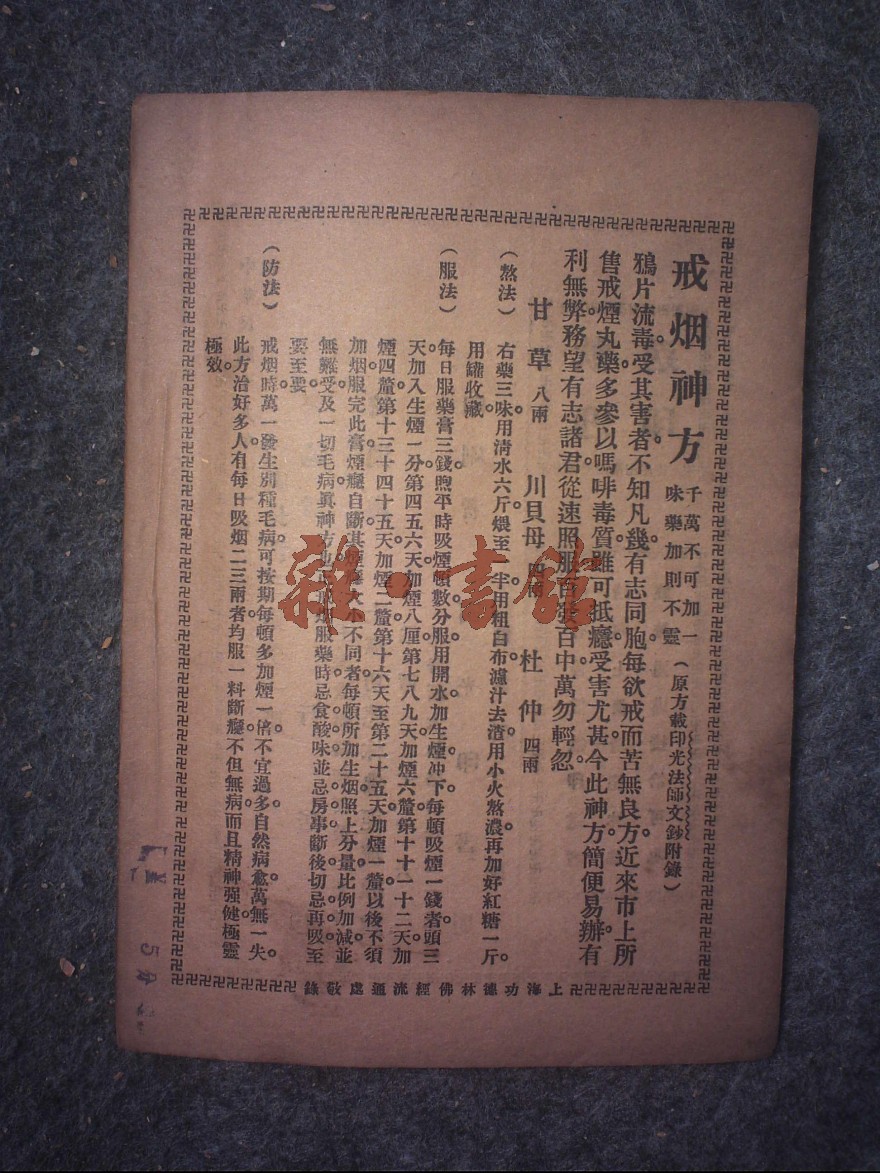 戒烟神方
千萬不可加一
味藥加則不靈
（原方載印光法師文鈔附錄）
鴉片流毒。受其害者。不知凡幾。有志同胞。每欲戒而苦無良方。近來市上所
售戒煙丸藥。多參以嗎啡毒質。雖可抵癮。受害尤甚。今此神方。簡便易辦。有
利無弊。務望有志諸君。從速照服。百發百中。萬勿輕忽
甘草 八兩 川貝母 四兩 杜仲 四兩
（熬法） 右藥三味。用清水六斤。煅至一半。用粗白布濾汁去渣。用小火熬濃。再加好紅糖一斤。
用罐收藏
（服法） 每日服藥膏三錢。煦平時吸煙頓數分服。用開水加生煙冲下。每頓吸煙一錢者。頭三
天。加入生煙一分。第四五六天。加煙八厘。第七八九天。加煙六釐。第十十一十二天。加
煙四釐。第十三十四十五天。加煙二釐。第十六天至第二十五天。加煙一釐。以後不須
加烟。服完此膏。煙癮自斷。其煙癮大小不同者。每頓所加生烟。照上分量比例加減。並
無難受及一切毛病。眞神方也。服藥時忌食酸味。並忌房事。斷後切忌再吸。至
要至要。
（防法） 戒烟時。萬一發生別種毛病。可按期每頓多加煙一倍。不宜過多。自然病愈。萬無一失。
此方治好多人。有每日吸烟二三兩者。均服一料斷癮。不但無病。而且精神强健。極靈
極效。
上海功德林佛經流通處敬錄
雜·書館